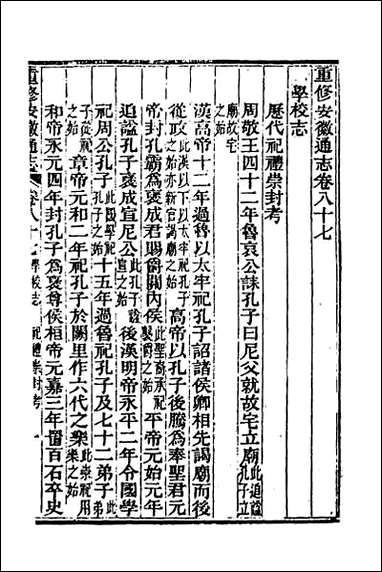 重修安徽通志卷八十七
學校志
歷代祀禮崇封考
周敬王四十二年魯哀公誄孔子曰尼父就故宅立廟此追諡孔子立
廟故宅
之始
漢高帝十二年過魯以太牢祀孔子詔諸侯卿相先謁廟而後
從政此漢以下以太牢祀孔子
之始亦新官謁廟之始高帝以孔子後騰為奉聖君元
帝封孔霸為褒成君賜爵關內侯此聖裔承祀
襲爵之始平帝元始元年
追諡孔子褒成宣尼公此孔子諡
宣之始後漢明帝永平二年令國學
祀周公孔子此國學祀
孔子之始十五年過魯祀孔子及七十二弟子此
子從祀
之始章帝元和二年祀孔子於闕里作六代之樂此崇祀用
樂之始
和帝永元四年封孔子為褒尊侯相帝元嘉三年置百石卒史
重修安徽通志
卷八十七 學校志 祀禮崇封考 一